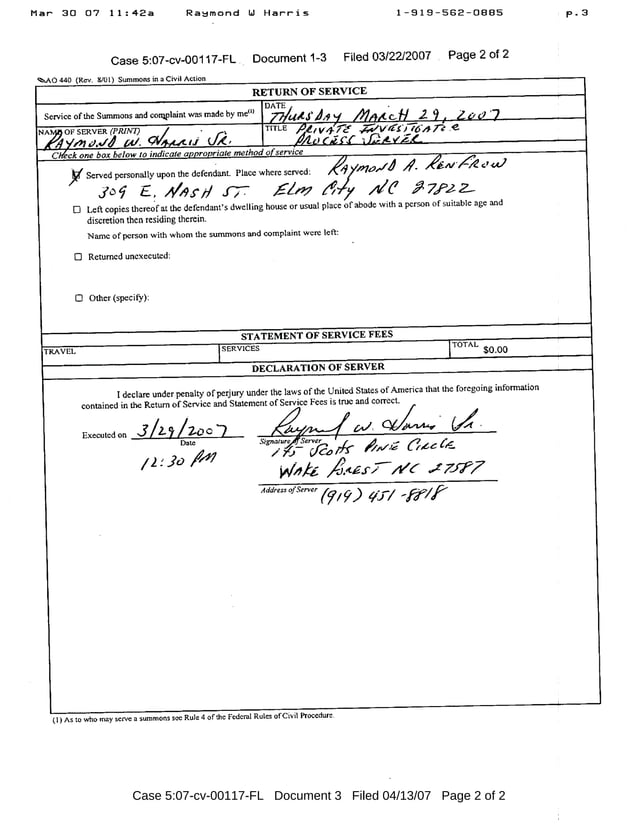 Mar 30 07 11:42a Raymond W Harris 1-919-562-0885 p.3
Case 5:07-cv-00117-FL Document 1-3 Filed 03/22/2007 Page 2 of 2
AO 440 (Rev. 8/01) Summons in a Civil Action
RETURN OF SERVICE
Service of the Summons and complaint was made by me(1) DATE THURSDAY MARCH 29, 2007
NAME OF SERVER (PRINT) RAYMOND W. HARRIS JR. TITLE PRIVATE INVESTIGATOR
PROCESS SERVER
Check one box below to indicate appropriate method of service
Served personally upon the defendant. Place where served: RAYMOND A. RENFROW
309 E. NASH ST. ELM CITY NC 27822
☐ Left copies thereof at the defendant's dwelling house or usual place of abode with a person of suitable age and
discretion then residing therein.
Name of person with whom the summons and complaint were left:
☐ Returned unexecuted:
☐ Other (specify):
STATEMENT OF SERVICE FEES
TRAVEL SERVICES TOTAL $0.00
DECLARATION OF SERVER
I declare under penalty of perjury under the laws of the United States of America that the foregoing information
contained in the Return of Service and Statement of Service Fees is true and correct.
Executed on 3/29/2007 Raymond W. Harris Jr.
Date Signature of Server
12:30 PM 145 Scotts PINE CIRCLE
WAKE FOREST NC 27587
Address of Server (919) 451-8818
(1) As to who may serve a summons see Rule 4 of the Federal Rules of Civil Procedure.
Case 5:07-cv-00117-FL Document 3 Filed 04/13/07 Page 2 of 2